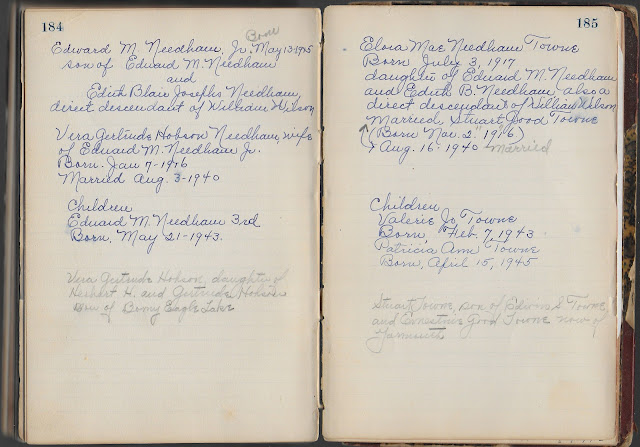 184
Born
Edward M. Needham, Jr. May 13-1915
son of Edward M. Needham
and
Edith Blair Josephs Needham,
direct descendant of William Wilson
Vera Gertrude Hobson Needham, wife
of Edward M. Needham Jr.
Born. Jan 7-1916
Married Aug. 3-1940
Children
Edward M. Needham 3rd
Born, May 21-1943.
Vera Gertrude Hobson, daughter of
Herbert H. and Gertrude Hobson
now of Bonny Eagle Lake
185
Elora Mae Needham Towne
Born July 3, 1917
daughter of Edward M. Needham
and Edith B. Needham also a
direct descendant of William Wilson
Married, Stuart Good Towne
(Born Nov. 2" 1916)
Aug. 16-1940 Married
Children
Valerie Jo Towne
Born, Feb. 7, 1943
Patricia Ann Towne
Born, April 15, 1945
Stuart Towne, son of Edwin S Towne,
and Good Towne now of